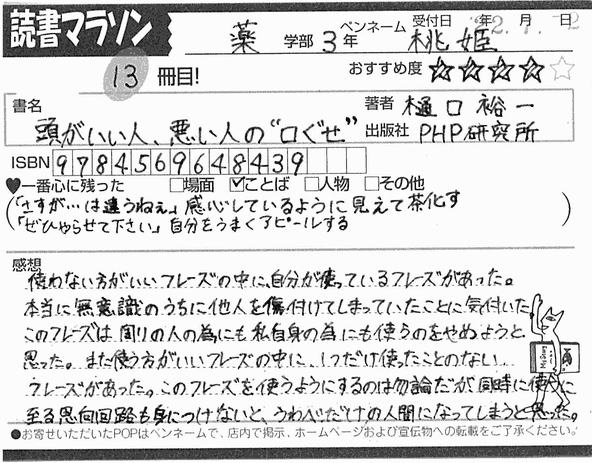 読書マラソン
薬 学部 3 年 ペンネーム 桃姫 受付日 22年 7月 2日
13 冊目!
おすすめ度 ★★★★☆
書名 頭がいい人、悪い人の“口ぐせ”
著者 樋口裕一
出版社 PHP研究所
ISBN 9784569648439
♥一番心に残った □場面 ☑ことば □人物 □その他
(「さすが…は違うねぇ」感心しているように見えて茶化す
「ぜひやらせて下さい」自分をうまくアピールする)
感想
使わない方がいいフレーズの中に、自分が使っているフレーズがあった。
本当に無意識のうちに他人を傷付けてしまっていたことに気付いた。
このフレーズは周りの人の為にも私自身の為にも使うのをやめようと
思った。また使う方がいいフレーズの中に、1つだけ使ったことのない
フレーズがあった。このフレーズを使うようにするのは勿論だが同時に使うに
至る思向回路も身につけないと、うわべだけの人間になってしまうと思った。
●お寄せいただいたPOPはペンネームで、店内で掲示、ホームページおよび宣伝物への転載をご了承ください。